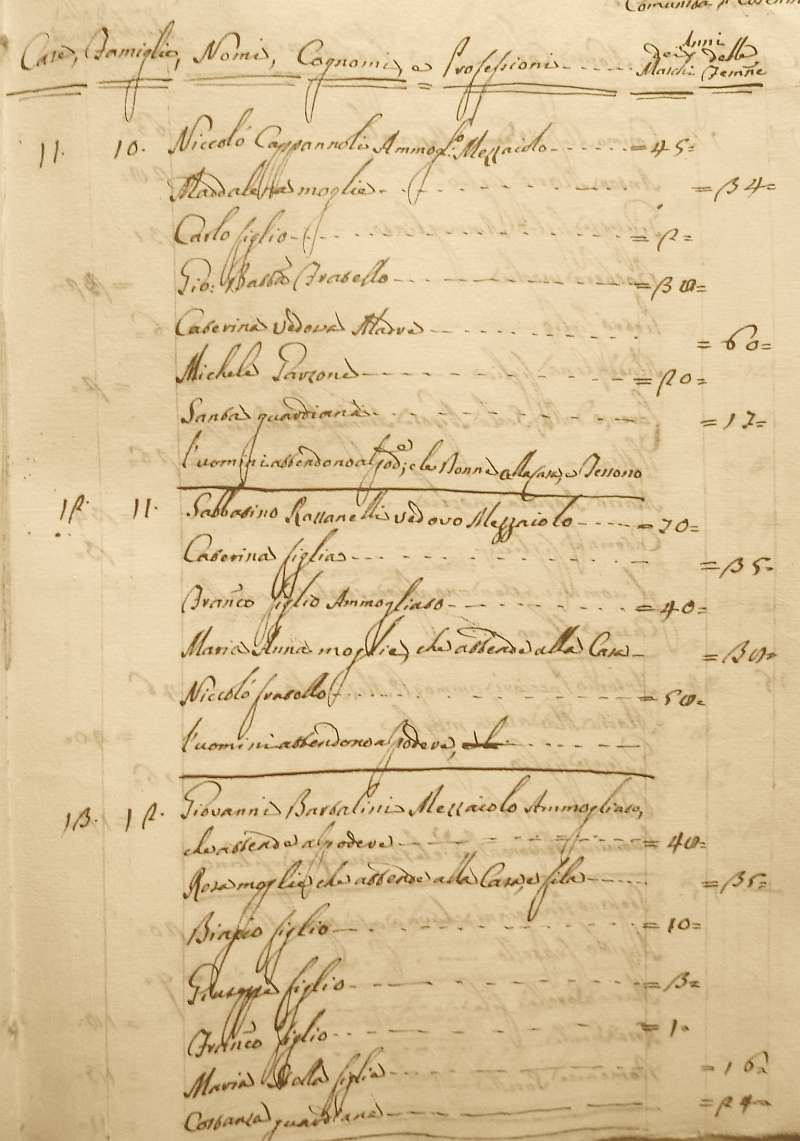 Comunità di
Case, Famiglie, Nomi, Cognomi, e Professioni Anni dei Maschi delle Femne
11. 10. Niccolò Cappannoli Ammoglo. Mezzaiolo = 45=
Maddalena moglie = 34=
Carlo figlio = 2=
Gio: Batta Fratello = 30=
Caterina vedova Madre = 60=
Michele Garzone = 20=
Santa guardiana = 17=
l'uomini attendono al Pode; e le Donne alla Casa, e Tessono
12. 11. Sabbatino Rassanelli vedovo Mezzaiolo = 70=
Caterina figlia = 35=
Franco figlio Ammogliato = 40=
Maria Anna moglie, che attende alla Casa = 30=
Niccolò fratello = 50=
l'uomini attendono al Podere,
13. 12. Giovanni Bartalini Mezzaiolo Ammogliato,
che attende al podere = 40=
Rosa moglie che attende alla Casa, e fila = 35=
Biagio figlio = 10=
Giuseppe figlio = 3=
Franco figlio = 1.
Maria Stella figlia = 16=
Costanza guardiana = 24=